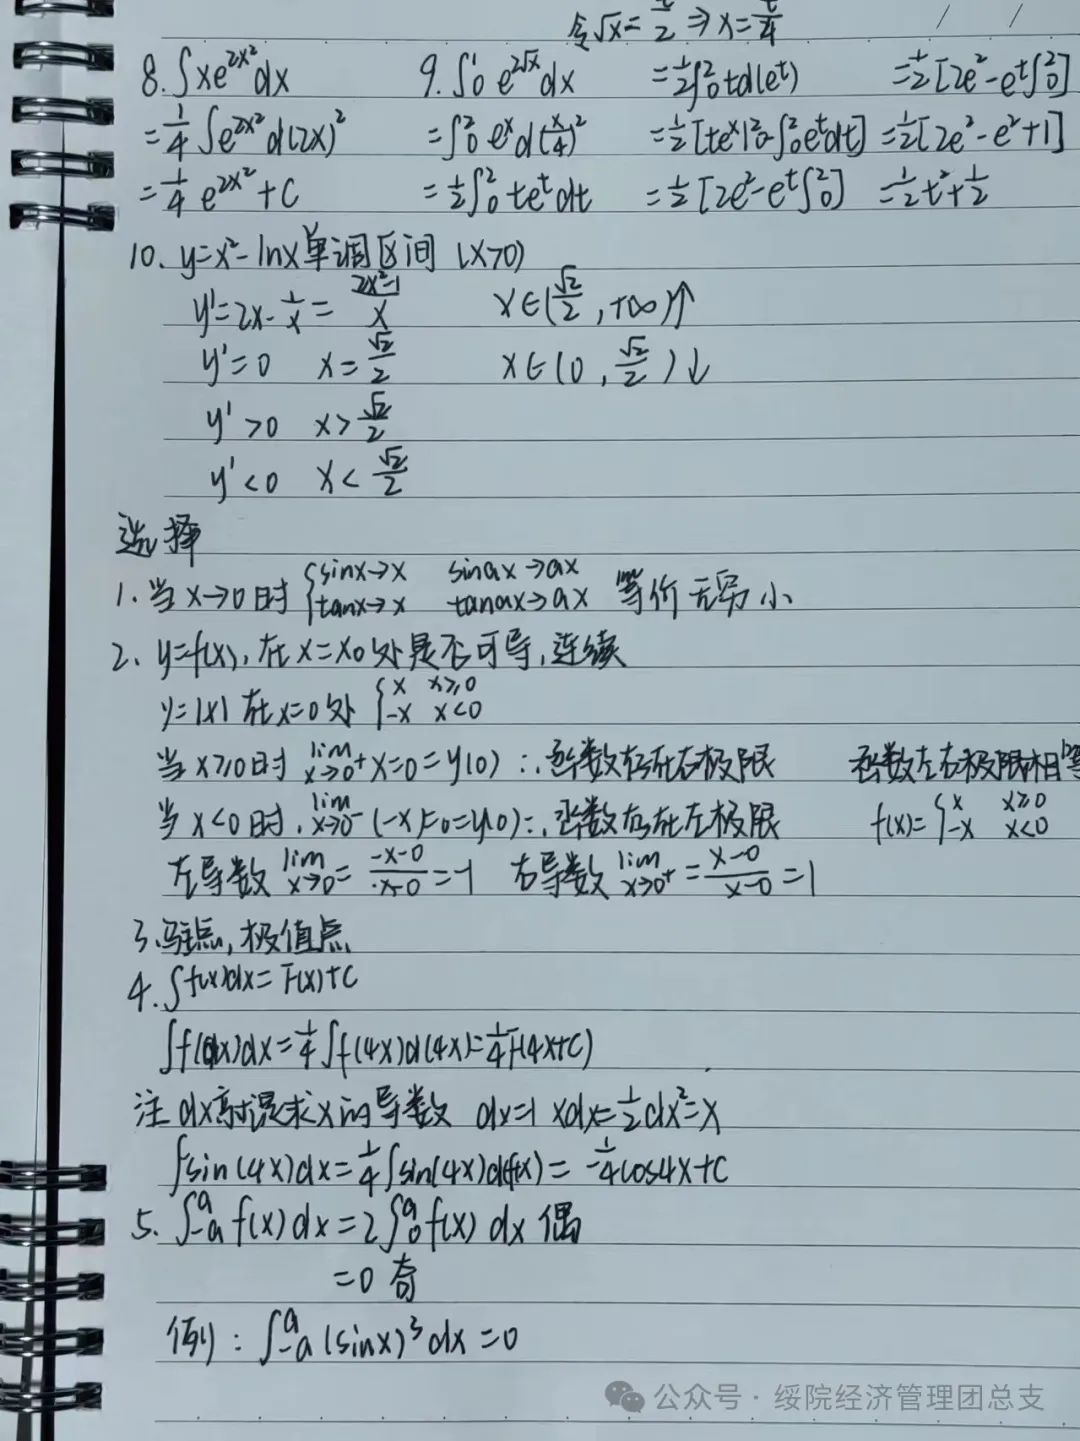 令√x=t/2 ⇒ x=t/4
8. ∫xe^{2x²}dx 9. ∫₀¹ e^{2√x}dx =1/2∫₀²td(e^t) =1/2[2e²-e^t∫₀²]
=1/4∫e^{2x²}d(2x)² =∫₀² e^x d(x/4)² =1/2[te^x|₀²-∫₀²e^t dt] =1/2[2e²-e²+1]
=1/4 e^{2x²}+C =1/2∫₀² te^t dt =1/2[2e²-e^t∫₀²] =1/2t²+1/2
10. y=x²-lnx单调区间 (x>0)
y'=2x-1/x=(2x²-1)/x x∈(√2/2,+∞)↑
y'=0 x=√2/2 x∈(0,√2/2)↓
y'>0 x>√2/2
y'<0 x<√2/2
选择
1. 当x→0时{sinx→x sinax→ax tanx→x tanax→ax 等价无穷小
2. y=f(x),在x=x₀处是否可导,连续
y=|x|在x=0处{x x≥0 -x x<0
当x≥0时 lim x→0⁺ x=0=y(0) ∴函数存在右极限 函数左右极限相等
当x<0时, lim x→0⁻ (-x)=0=y(0)∴函数存在左极限 f(x)={x x≥0 -x x<0
左导数 lim x→0⁻=(-x-0)/(x-0)=-1 右导数 lim x→0⁺=(x-0)/(x-0)=1
3. 驻点,极值点
4. ∫f(x)dx=F(x)+C
dx=1/4∫f(4x)d(4x)=1/4F(4x+C)
注 dx 求x的导数 dx=1 xdx=1/2dx²=x
∫sin(4x)dx=1/4∫sin(4x)d(4x)=-1/4cos4x+C
5. ∫₋ₐᵃf(x)dx=2∫₀ᵃf(x)dx 偶
=0 奇
例:∫₋ₐᵃ(sinx)³dx=0
公众号·绥院经济管理团总支